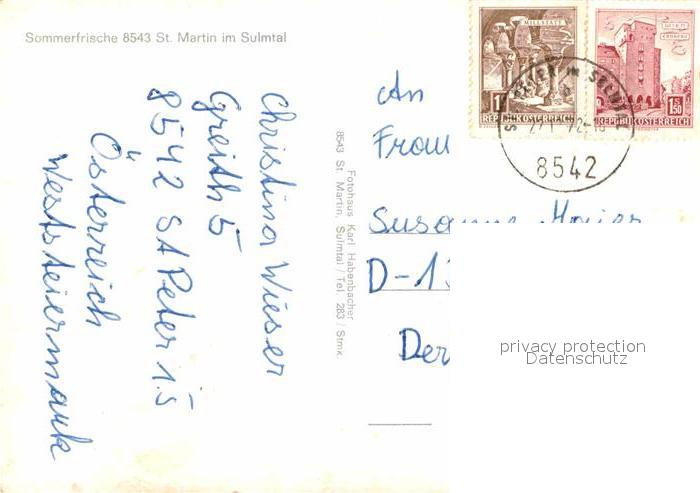 Sommerfrische 8543 St. Martin im Sulmtal
Christina Wieser
Greith 5
8542 St Peter i. S
Österreich
Weststeiermark
Fotohaus Karl Habenbacher
8543 St. Martin, Sulmtal / Tel. 283 / Stmk.
MILLSTATT
REPUBLIK ÖSTERREICH
WIEN
ERDBERG
1S50
REPUBLIK ÖSTERREICH
8542
An
Frau
Susanne Maier
D-1
Der
privacy protection
Datenschutz